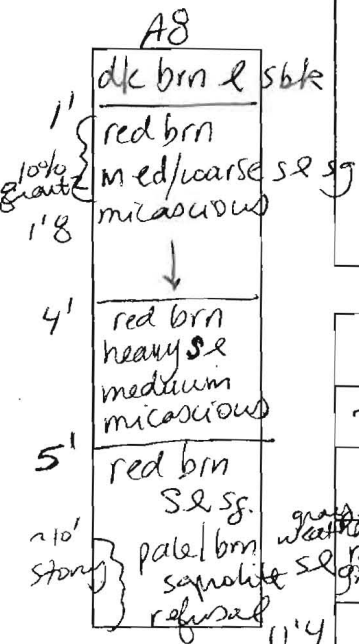 A8
dk brn l sbk
1'
red brn
10%
med/coarse sl sg
micascious
1'8
4'
red brn
heavy sl
medium
micascious
5'
red brn
sl sg.
~10'
stony
pale/brn
saprolite sl
refusal
11'4